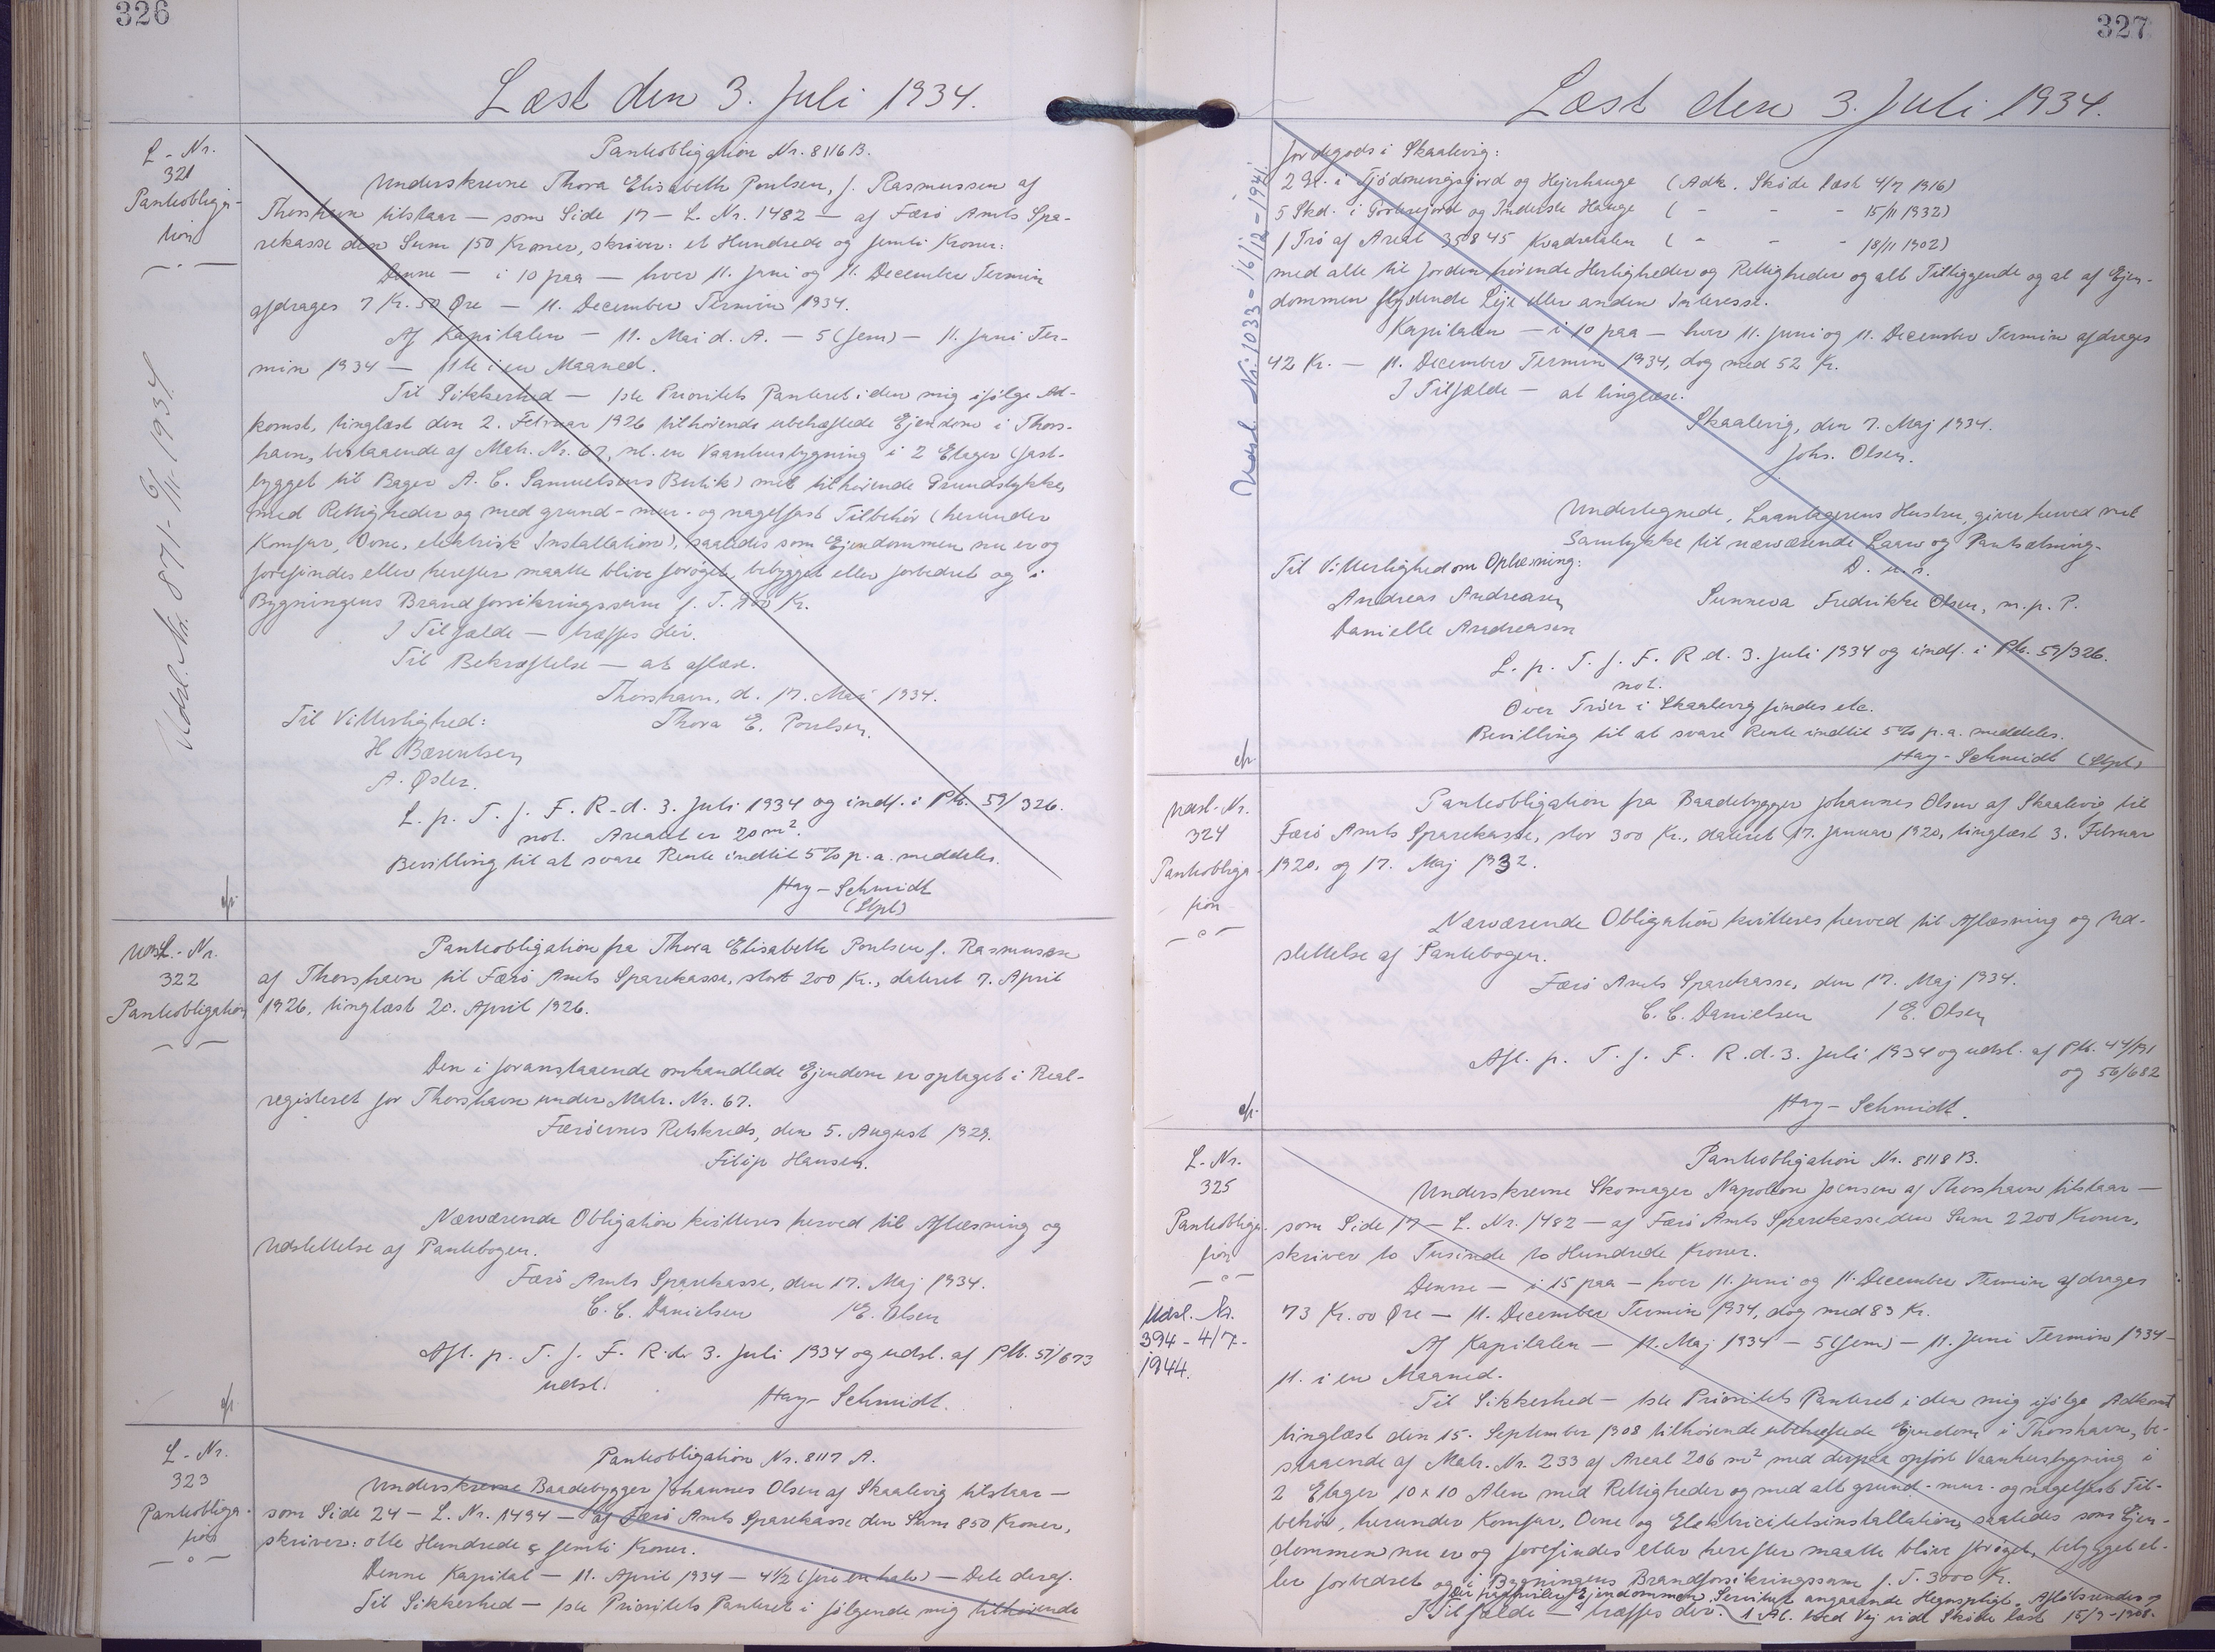 326
Læst den 3. Juli 1934.
L.-Nr.
321
Panteobliga-
tion
Udsl. Nr. 871 - 6/11-1934
Panteobligation Nr. 8116 B.
Underskrevne Thora Elisabeth Poulsen, f. Rasmussen af
Thorshavn tilstaar — som Side 17 — L. Nr. 1482 — af Færö Amts Spa-
rekasse den Sum 150 Kroner, skriver: et Hundrede og femti Kroner.
Denne — i 10 paa — hver 11. Juni og 11. December Termin
afdrages 7 Kr. 50 Øre — 11. December Termin 1934.
Af Kapitalen — 11. Mai d. A. — 5 (fem) — 11. Juni Ter-
min 1934 — 11te i en Maaned.
Til Sikkerhed — 1ste Prioritets Panteret i den mig ifölge Ad-
komst, tinglæst den 2. Februar 1926 tilhörende ubehæftede Ejendom i Thors-
havn, bestaaende af Matr. Nr. 67, nl. en Vaaninhusbygning i 2 Etager (fast-
bygget til Bager A. C. Samuelsens Butik) med tilhörende Grundstykke,
med Rettigheder og med grund- mur- og nagelfast Tilbehör (herunder
Komfur, Ovne, elektrisk Installation), saaledes som Ejendommen nu er og
forefindes eller herefter maatte blive foröget, bebygget eller forbedret og i
Bygningens Brandforsikringssum f. T. 900 Kr.
I Tilfælde — træffes der.
Til Bekræftelse — at aflæse.
Thorshavn, d. 17. Mai 1934.
Til Vitterlighed: Thora E. Poulsen.
H Bærentsen
A. Øster.
L. p. T. f. F. R. d. 3. Juli 1934 og indf. i Pb. 59/326.
not. Arealet er 20 m².
Bevilling til at svare Rente indtil 5% p. a. meddeles.
Hay-Schmidt
(Stpl)
Udsl.-Nr.
322
Panteobligation
Panteobligation fra Thora Elisabeth Poulsen f. Rasmussen
af Thorshavn til Færö Amts Sparekasse, stor 200 Kr., dateret 7. April
1926, tinglæst 20. April 1926.
Den i foranstaaende omhandlede Ejendom er optaget i Real-
registeret for Thorshavn under Matr. Nr. 67.
Færöernes Retskreds, den 5. August 1929.
Filip Hansen.
Nærværende Obligation kvitteres herved til Aflæsning og
Udslettelse af Pantebogen.
Færö Amts Sparekasse, den 17. Maj 1934.
C. C. Danielsen / E. Olsen
Afl. p. T. f. F. R. d. 3. Juli 1934 og udsl. af Pb. 51/673
udsl.
Hay-Schmidt.
L-Nr.
323
Panteobliga-
tion
Panteobligation Nr. 8117 A.
Underskrevne Baadebygger Johannes Olsen af Skaalevig tilstaar —
som Side 24 — L. Nr. 1494 — af Færö Amts Sparekasse den Sum 850 Kroner,
skriver: otte Hundrede & femti Kroner.
Denne Kapital — 11. April 1934 — 4 1/2 (fire en halv) — Dele deraf.
Til Sikkerhed — 1ste Prioritets Panteret i fölgende mig tilhörende
327
Læst den 3. Juli 1934.
Udsl. Nr. 1033 - 16/12-1941.
Jordegods i Skaalevig:
2 Gl. i Tjödenevigsjord og Hejnhauge (Adk. Sköde læst 4/7 1916)
5 Skd. i og Inderste Hauge ( - - - 15/11 1932)
1 Trö af Areal 350845 Kvadratalen ( - - - 18/11 1902)
med alle til Jorden hörende Herligheder og Rettigheder og alt Tilliggende og al af Ejen-
dommen flydende Leje eller anden Interesse.
Kapitalen — i 10 paa — hver 11. Juni og 11. December Termin afdrages
42 Kr. — 11. December Termin 1934, dog med 52 Kr.
I Tilfælde — at tinglæse.
Skaalevig, den 7. Maj 1934.
Johs. Olsen.
Undertegnede, Laantagerens Hustru, giver herved mit
Samtykke til nærværende Laan og Pantsætning.
Til Vitterlighed om Oplæsning: D. u. s.
Andreas Andreasen Sunneva Fredrikke Olsen, m. p. P.
Danielle Andreasen
L. p. T. f. F. R d. 3. Juli 1934 og indf. i Pb. 59/326.
not.
Över Tröer i Skaalevig findes etc.
Bevilling til at svare Rente indtil 5% p. a. meddeles.
Hay-Schmidt (Stpl)
Udsl-Nr.
324
Panteobliga-
tion
Panteobligation fra Baadebygger Johannes Olsen af Skaalevig til
Færö Amts Sparekasse, stor 300 Kr., dateret 17. Januar 1920, tinglæst 3. Februar
1920, og 17. Maj 1932.
Nærværende Obligation kvitteres herved til Aflæsning og Ud-
slettelse af Pantebogen.
Færö Amts Sparekasse, den 17. Maj 1934.
C. C. Danielsen / E. Olsen
Afl. p. T. f. F. R. d. 3. Juli 1934 og udsl. af Pb. 44/191
og 56/682
Hay-Schmidt.
L.-Nr.
325
Panteobliga-
tion
Udsl. Nr.
394-4/7-
1944.
Panteobligation Nr. 8118 B.
Underskrevne Skomager Napoleon Joensen af Thorshavn tilstaar —
som Side 17 — L. Nr. 1482 — af Færö Amts Sparekasse den Sum 2200 Kroner,
skriver to Tusinde to Hundrede Kroner.
Denne — i 15 paa — hver 11. Juni og 11. December Termin afdrages
73 Kr. 00 Øre — 11. December Termin 1934, dog med 83 Kr.
Af Kapitalen — 11. Maj 1934 — 5 (fem) — 11. Juni Termin 1934 —
11. i en Maaned.
Til Sikkerhed — 1ste Prioritets Panteret i den mig ifölge Adkomst
tinglæst den 15. September 1908 tilhörende ubehæftede Ejendom i Thorshavn, be-
staaende af Matr. Nr. 233 af Areal 206 m² med derpaa opfört Vaaninhusbygning i
2 Etager 10 x 10 Alen med Rettigheder og med alt grund- mur- og nagelfast Til-
behör, herunder Komfur, Ovne og Elektricitetsinstallation, saaledes som Ejen-
dommen nu er og forefindes eller herefter maatte blive foröget, bebygget el-
ler forbedret og i Bygningens Brandforsikringssum f. T. 3000 Kr.
Ejendommen Servitut angaaende Hegnspligt, Aflöbsrender,
I Tilfælde — træffes der. 1 Al. bred Vej vid Sköde læst 15/9-1908.